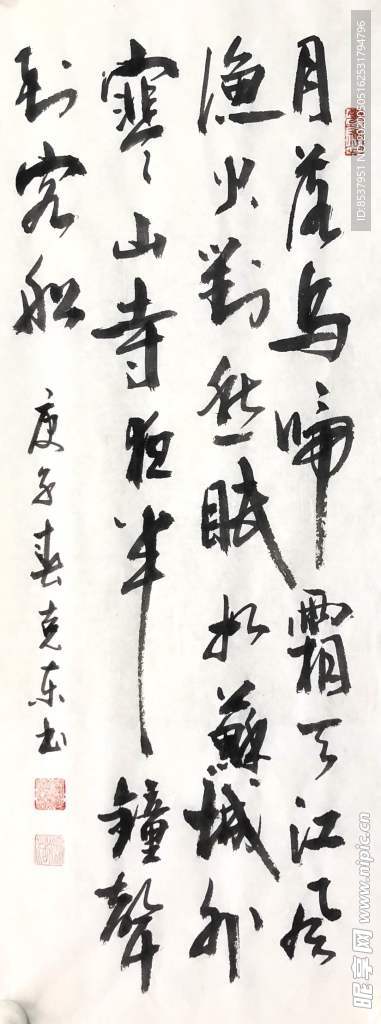 月落烏啼霜天江風
漁火對愁眠姑蘇城外
寒山寺夜半鐘聲
到客船
庚子春克東书
ID:8537951 NO:20200505162531794796
昵享网 www.nipic.cn